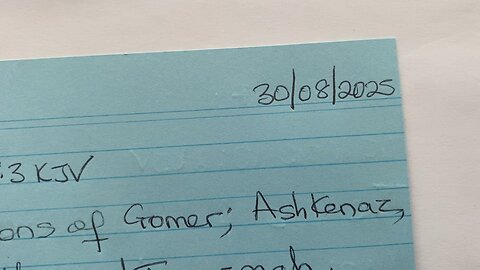 30/08/2025
:3 KJV
ons of Gomer; Ashkenaz,